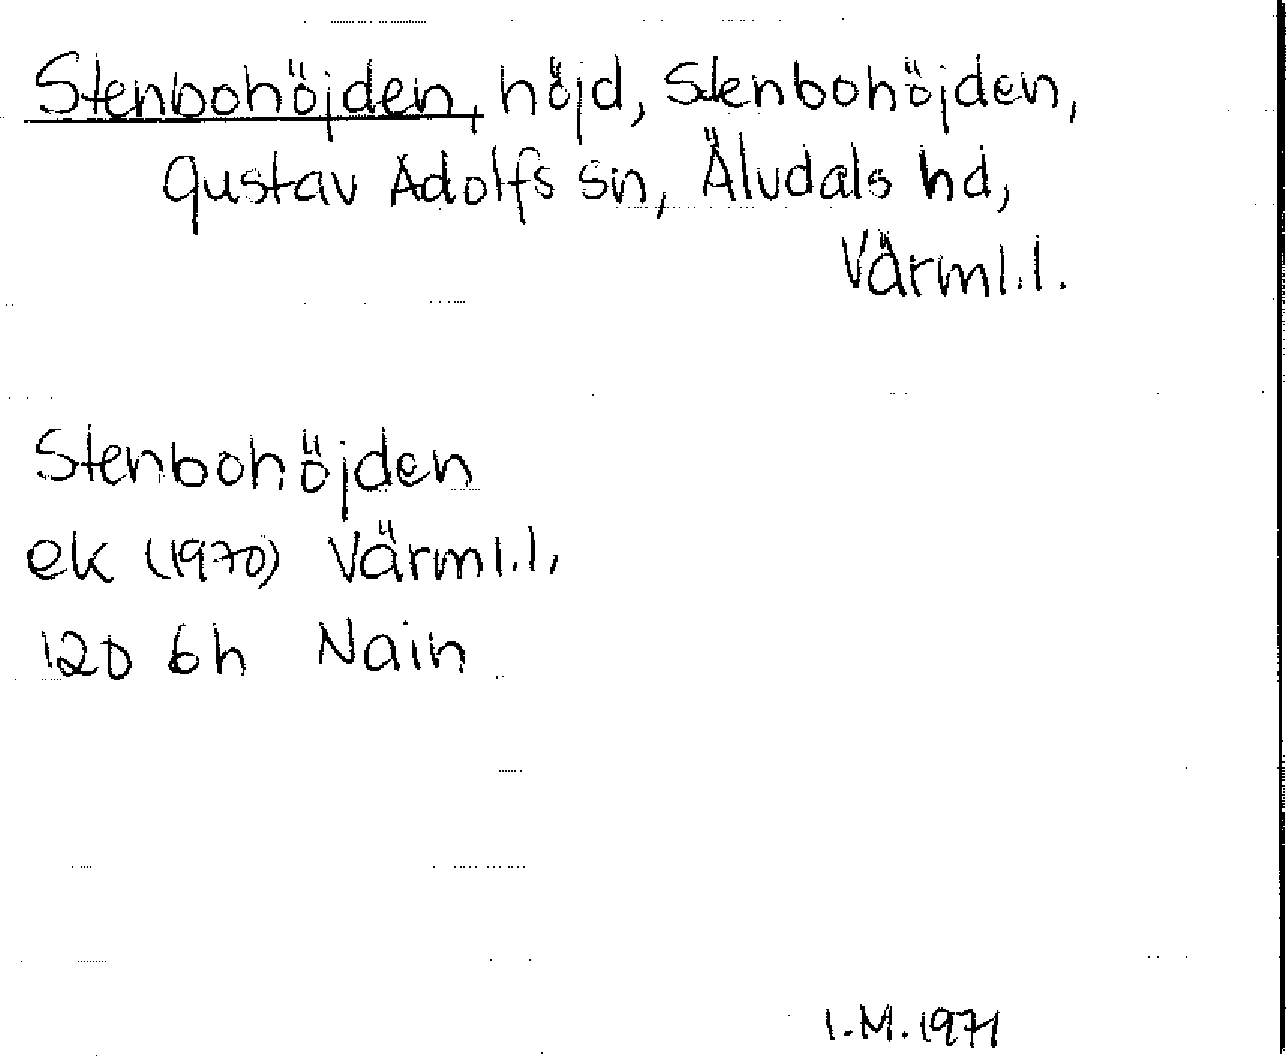 Stenbohöjden, höjd, Stenbohöjden,
Gustav Adolfs sn, Älvdals hd,
Värml.l.
Stenbohöjden
ek (1970) Värml.l,
12D 6h Nain
I.M.1971